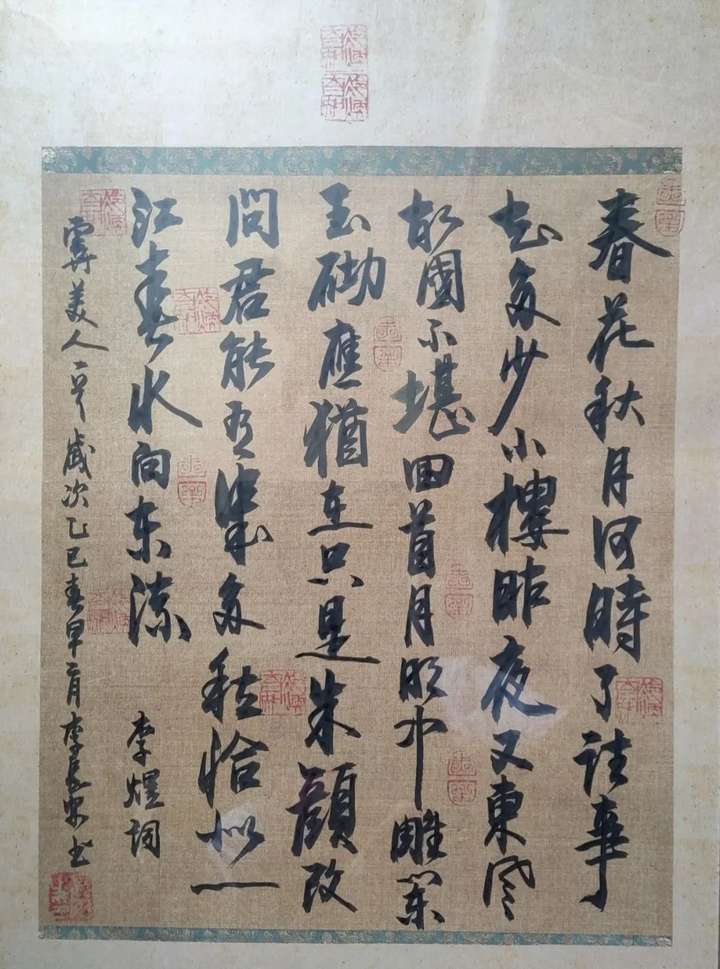 春花秋月何時了往事
知多少小樓昨夜又東風
故國不堪回首月明中雕闌
玉砌應猶在只是朱顏改
問君能有幾多愁恰似一
江春水向东流
李煜詞
虞美人一首歲次乙巳春早二月李书